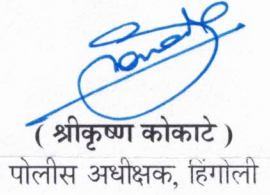 ( श्रीकृष्ण कोकाटे )
पोलीस अधीक्षक, हिंगोली